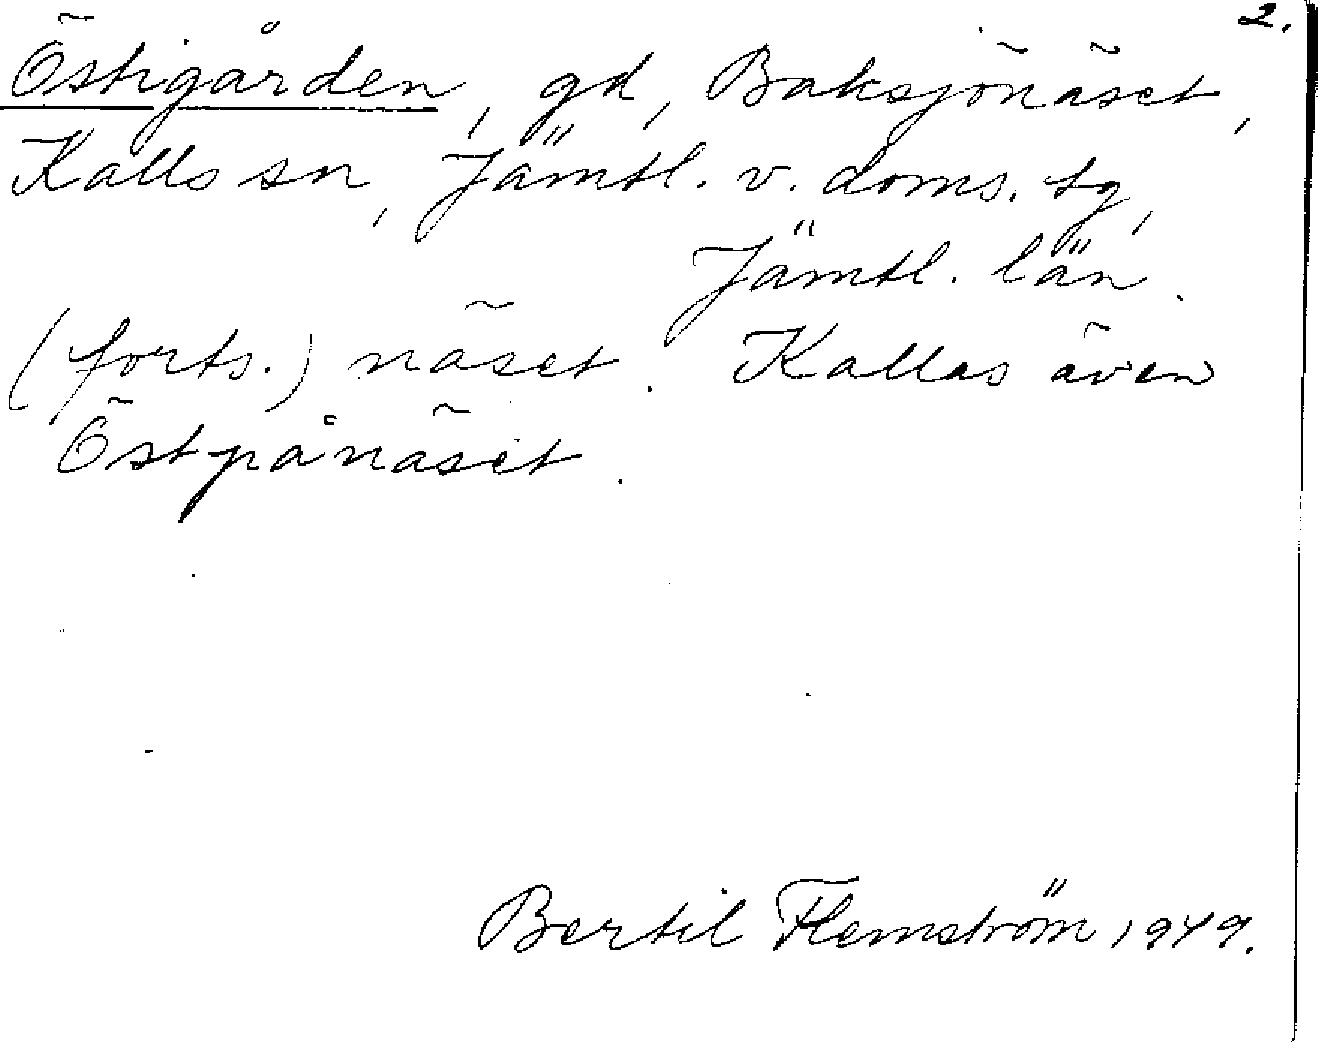 2.
Östigården, gd, Baksjönäset,
Kalls sn, Jämtl. v. doms. tg,
Jämtl. län.
(forts.) näset. Kallas även
Östpånäset.
Bertil Flemström 1949.